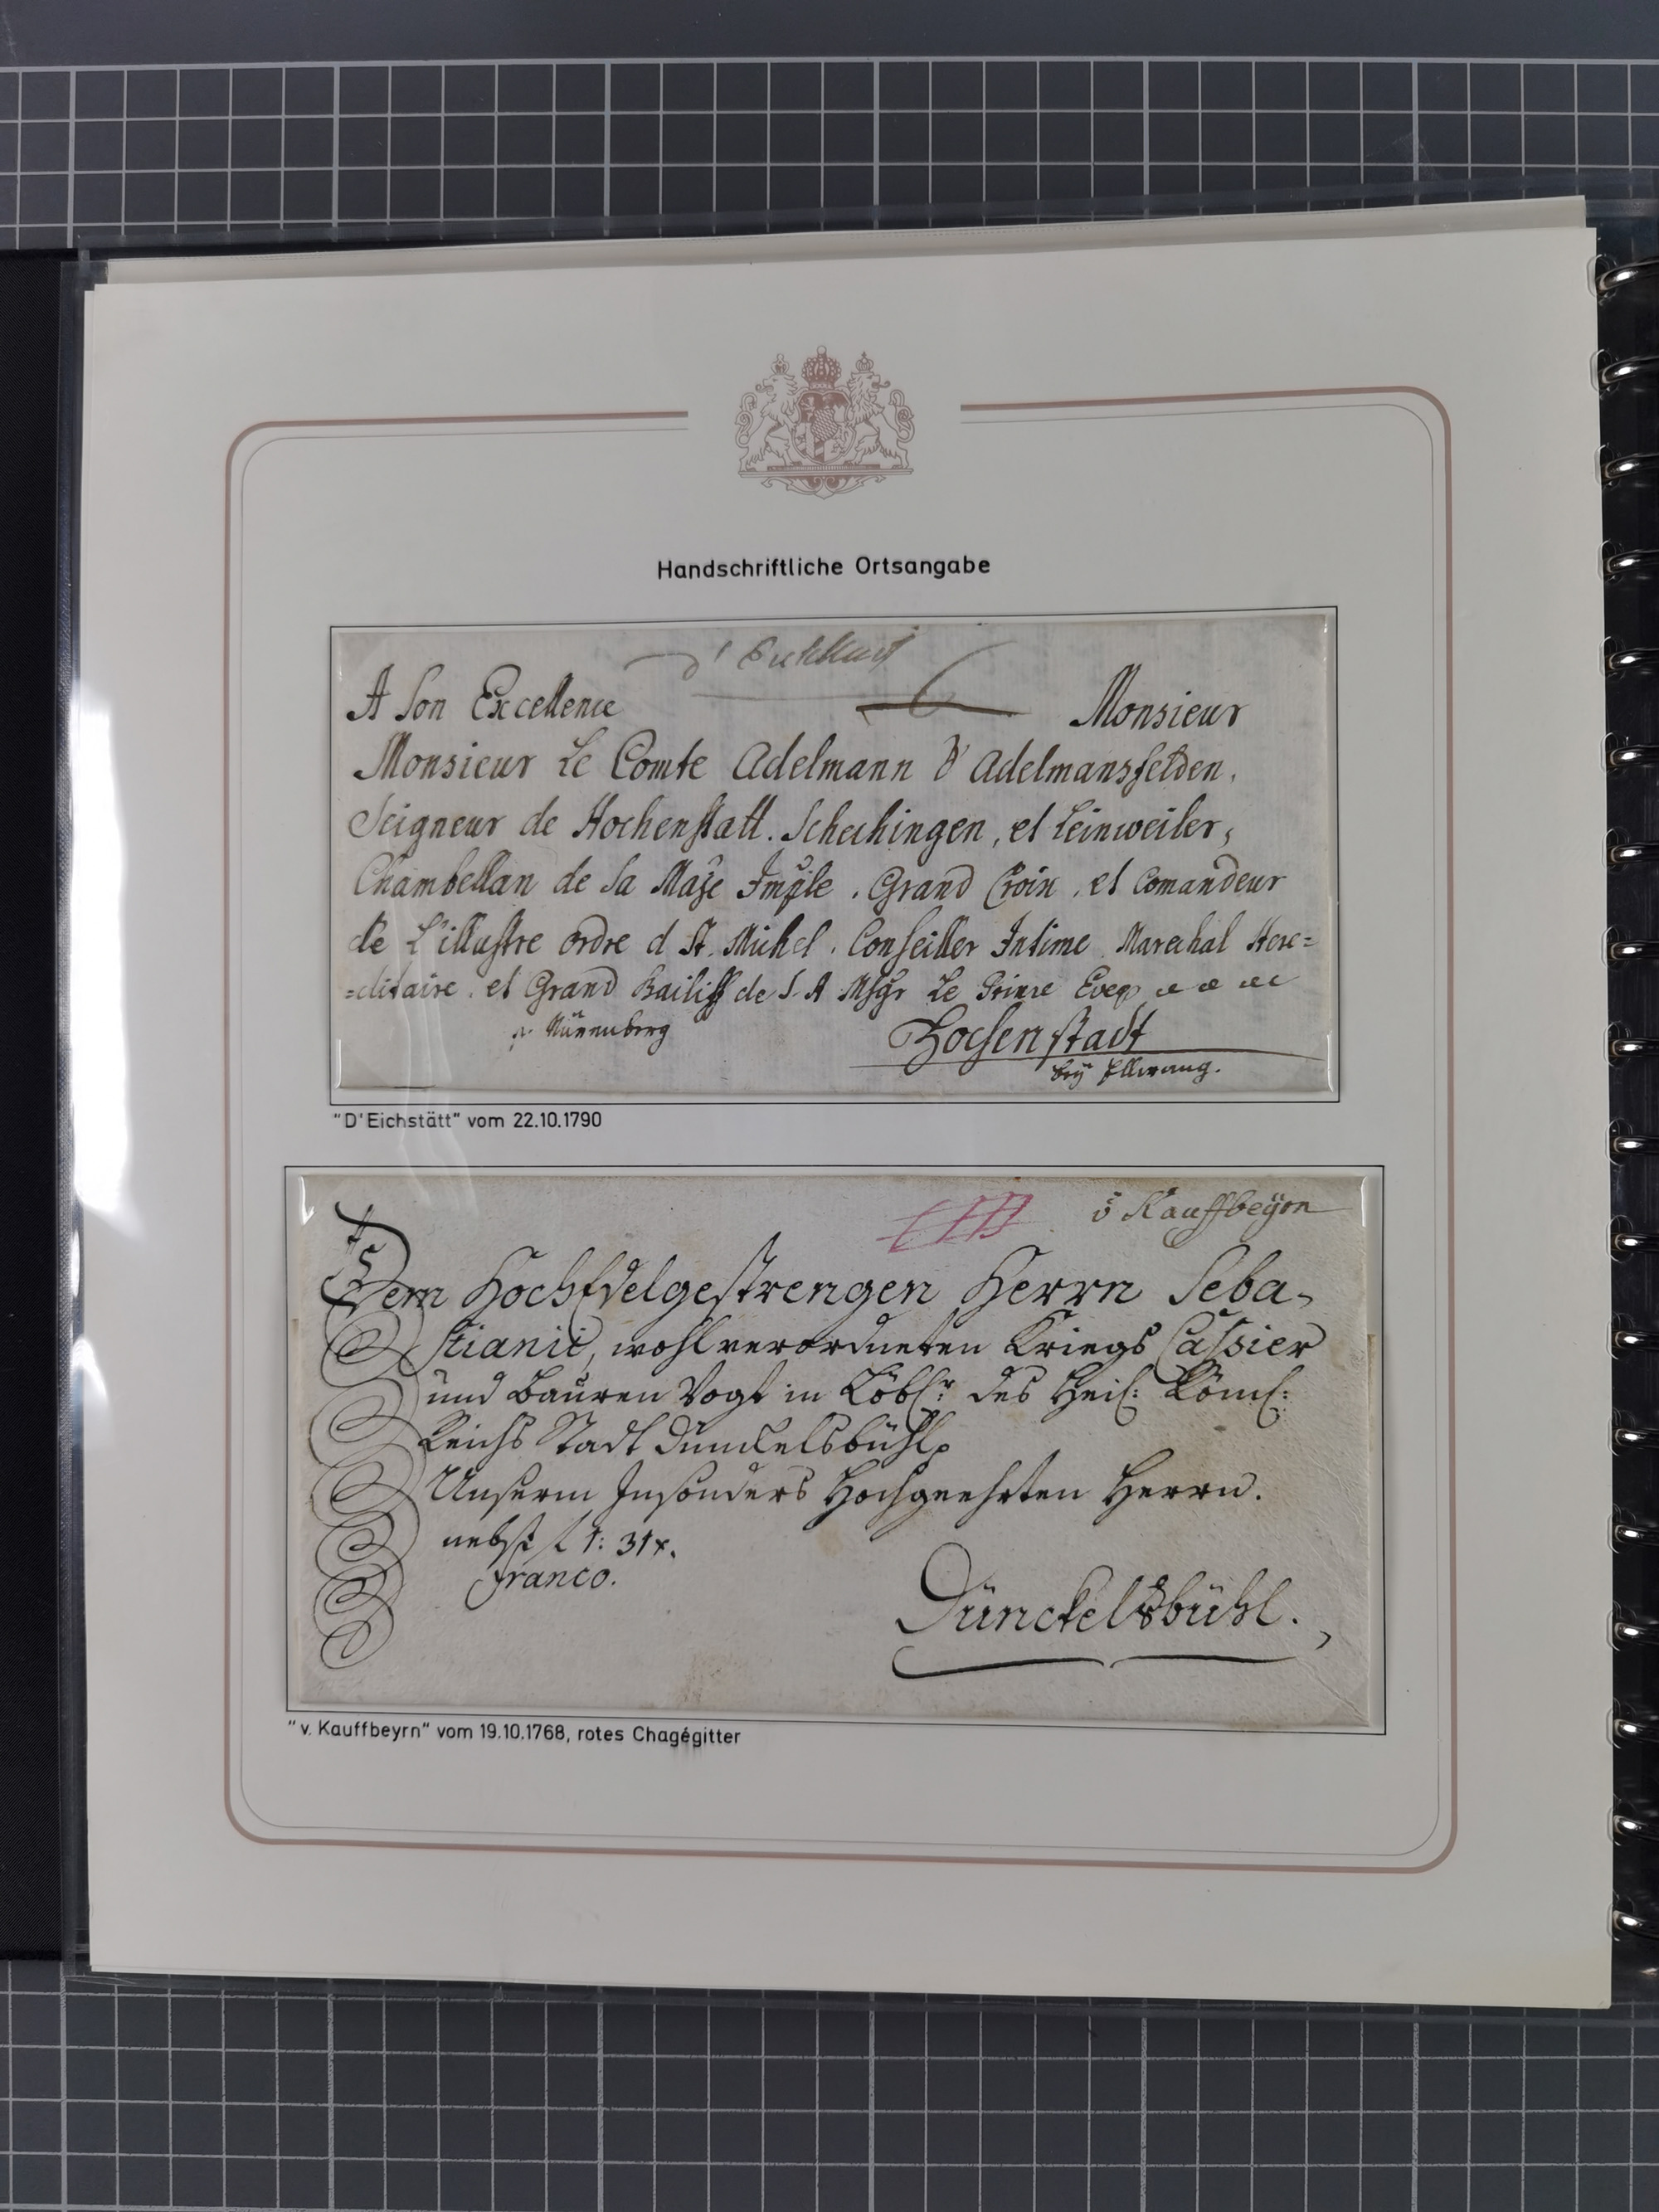 Handschriftliche Ortsangabe
d'
A Son Excellence Monsieur
Monsieur Le Comte Adelmann d'Adelmansfelden,
Seigneur de Hochenstatt. Schechingen, et Leinweiler,
Chambellan de Sa Maje Imple. Grand Croix, et Comandeur
de L'illustre ordre d St. Michel. Conseiller Intime Marechal Here=
=ditaire, et Grand Bailiff de S. A Msgr Le Prince Eveq
Nürnberg
Hochenstadt
bey Ellwang.
"D'Eichstätt" vom 22.10.1790
v Kauffbeyrn
Dem HochEdelgestrengen Herrn Seba-
stiani, wohlverordneten Kriegs Cassier
und Bauren Vogt in Löbl: des Heil: Röm:
Reichs Stadt Dünckelsbühl
Unserm Insonders Hochgeehrten Herrn.
nebst f 1: 31x.
franco.
Dünckelsbühl.
"v. Kauffbeyrn" vom 19.10.1768, rotes Chagégitter